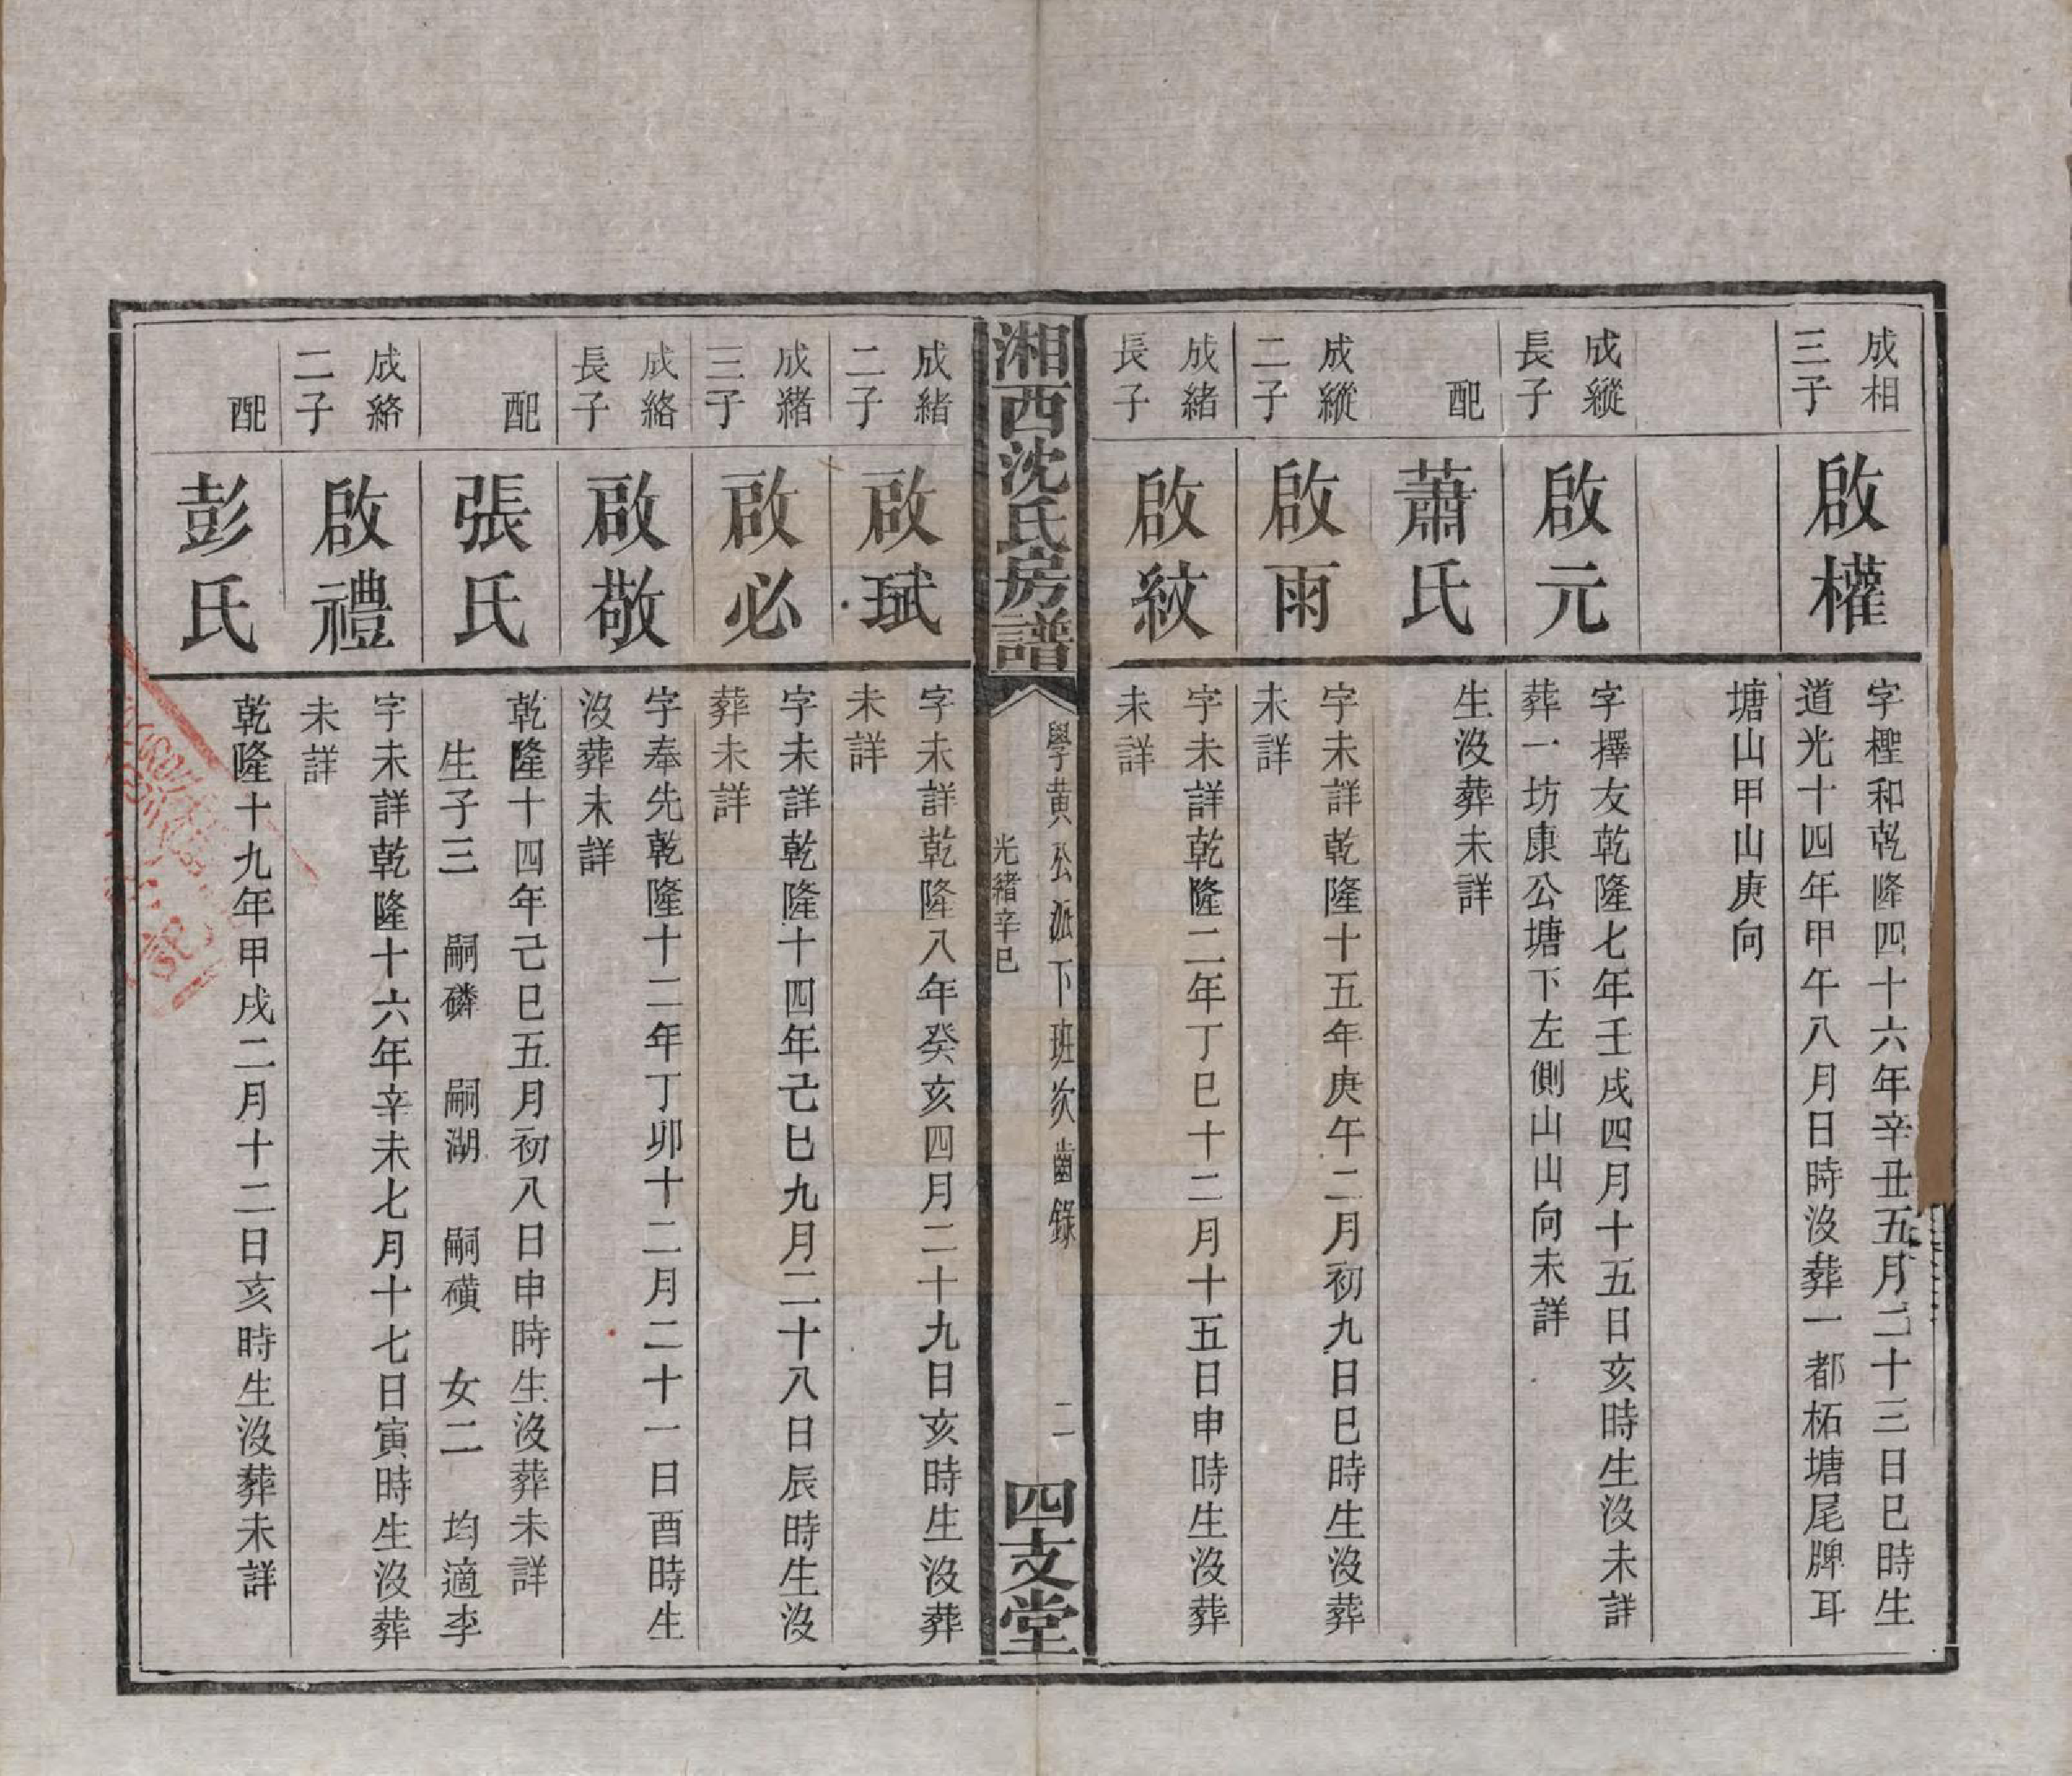 成相
三子
啟權
字檉和乾隆四十六年辛丑五月二十三日巳時生
道光十四年甲午八月日時沒葬一都柘塘尾牌耳
塘山甲山庚向
成縱
長子
啟元
字擇友乾隆七年壬戌四月十五日亥時生沒未詳
葬一坊康公塘下左側山山向未詳
配
蕭氏
生沒葬未詳
成縱
二子
啟雨
字未詳乾隆十五年庚午二月初九日巳時生沒葬
未詳
成緒
長子
啟紋
字未詳乾隆二年丁巳十二月十五日申時生沒葬
未詳
湘西沈氏房譜
學黃公派下班次齒錄
光緒辛巳
二
四支堂
成緒
二子
啟珷
字未詳乾隆八年癸亥四月二十九日亥時生沒葬
未詳
成緒
三子
啟必
字未詳乾隆十四年己巳九月二十八日辰時生沒
葬未詳
成絡
長子
啟敬
字奉先乾隆十二年丁卯十二月二十一日酉時生
沒葬未詳
配
張氏
乾隆十四年己巳五月初八日申時生沒葬未詳
生子三 嗣磷 嗣湖 嗣磺 女二 均適李
成絡
二子
啟禮
字未詳乾隆十六年辛未七月十七日寅時生沒葬
未詳
配
彭氏
乾隆十九年甲戌二月十二日亥時生沒葬未詳